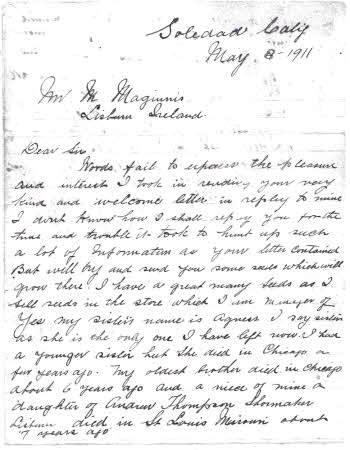 Soledad Calif
May 8-1911
Mr M Maginnis
Lisburn Ireland.
Dear Sir
Words fail to express the pleasure
and interest I took in reading your very
kind and welcome letter in reply to mine
I dont know how I shall repay you for the
time and trouble it took to hunt up such
a lot of Information as your letter contained
But will try and send you some seeds which will
grow there I have a great many seeds as I
sell seeds in the store which I am manager of
Yes my sister's name is Agness I say sister
as she is the only one I have left now. I had
a younger sister but she died in Chicago a
few years ago. My oldest brother died in Chicago
about 6 years ago and a niece of mine a
daughter of Andrew Thompson Shomaker
Lisburn died in St Louis Missouri about
7 years ago